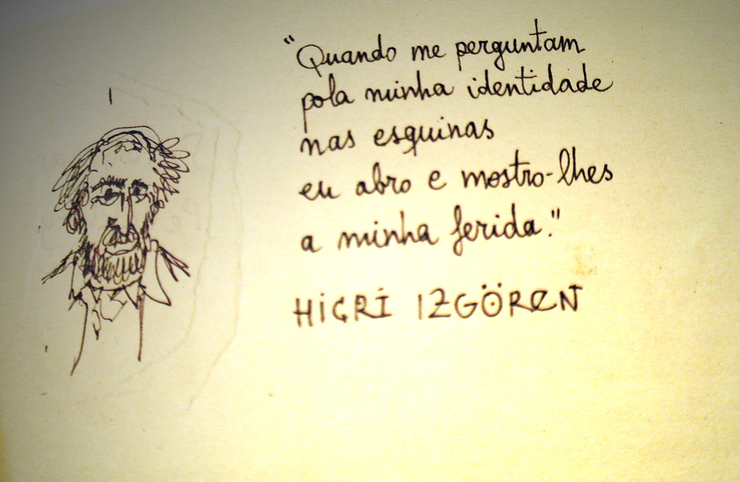 "Quando me perguntam
pola minha identidade
nas esquinas
eu abro e mostro-lhes
a minha ferida."
HİCRİ IZGÖREN